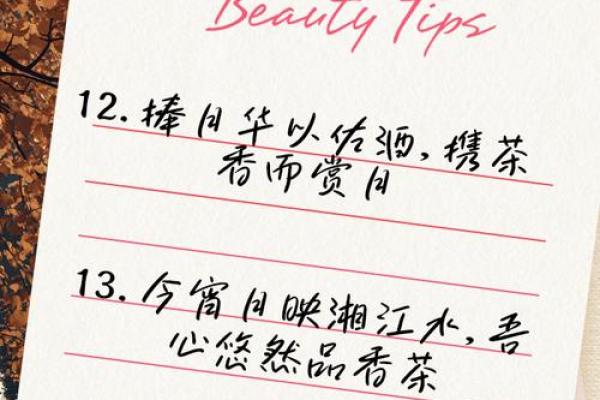 Beauty Tips
12. 捧月华以佐酒,携茶
香而赏月
13. 今宵月映湘江水,吾
心悠然品香茶